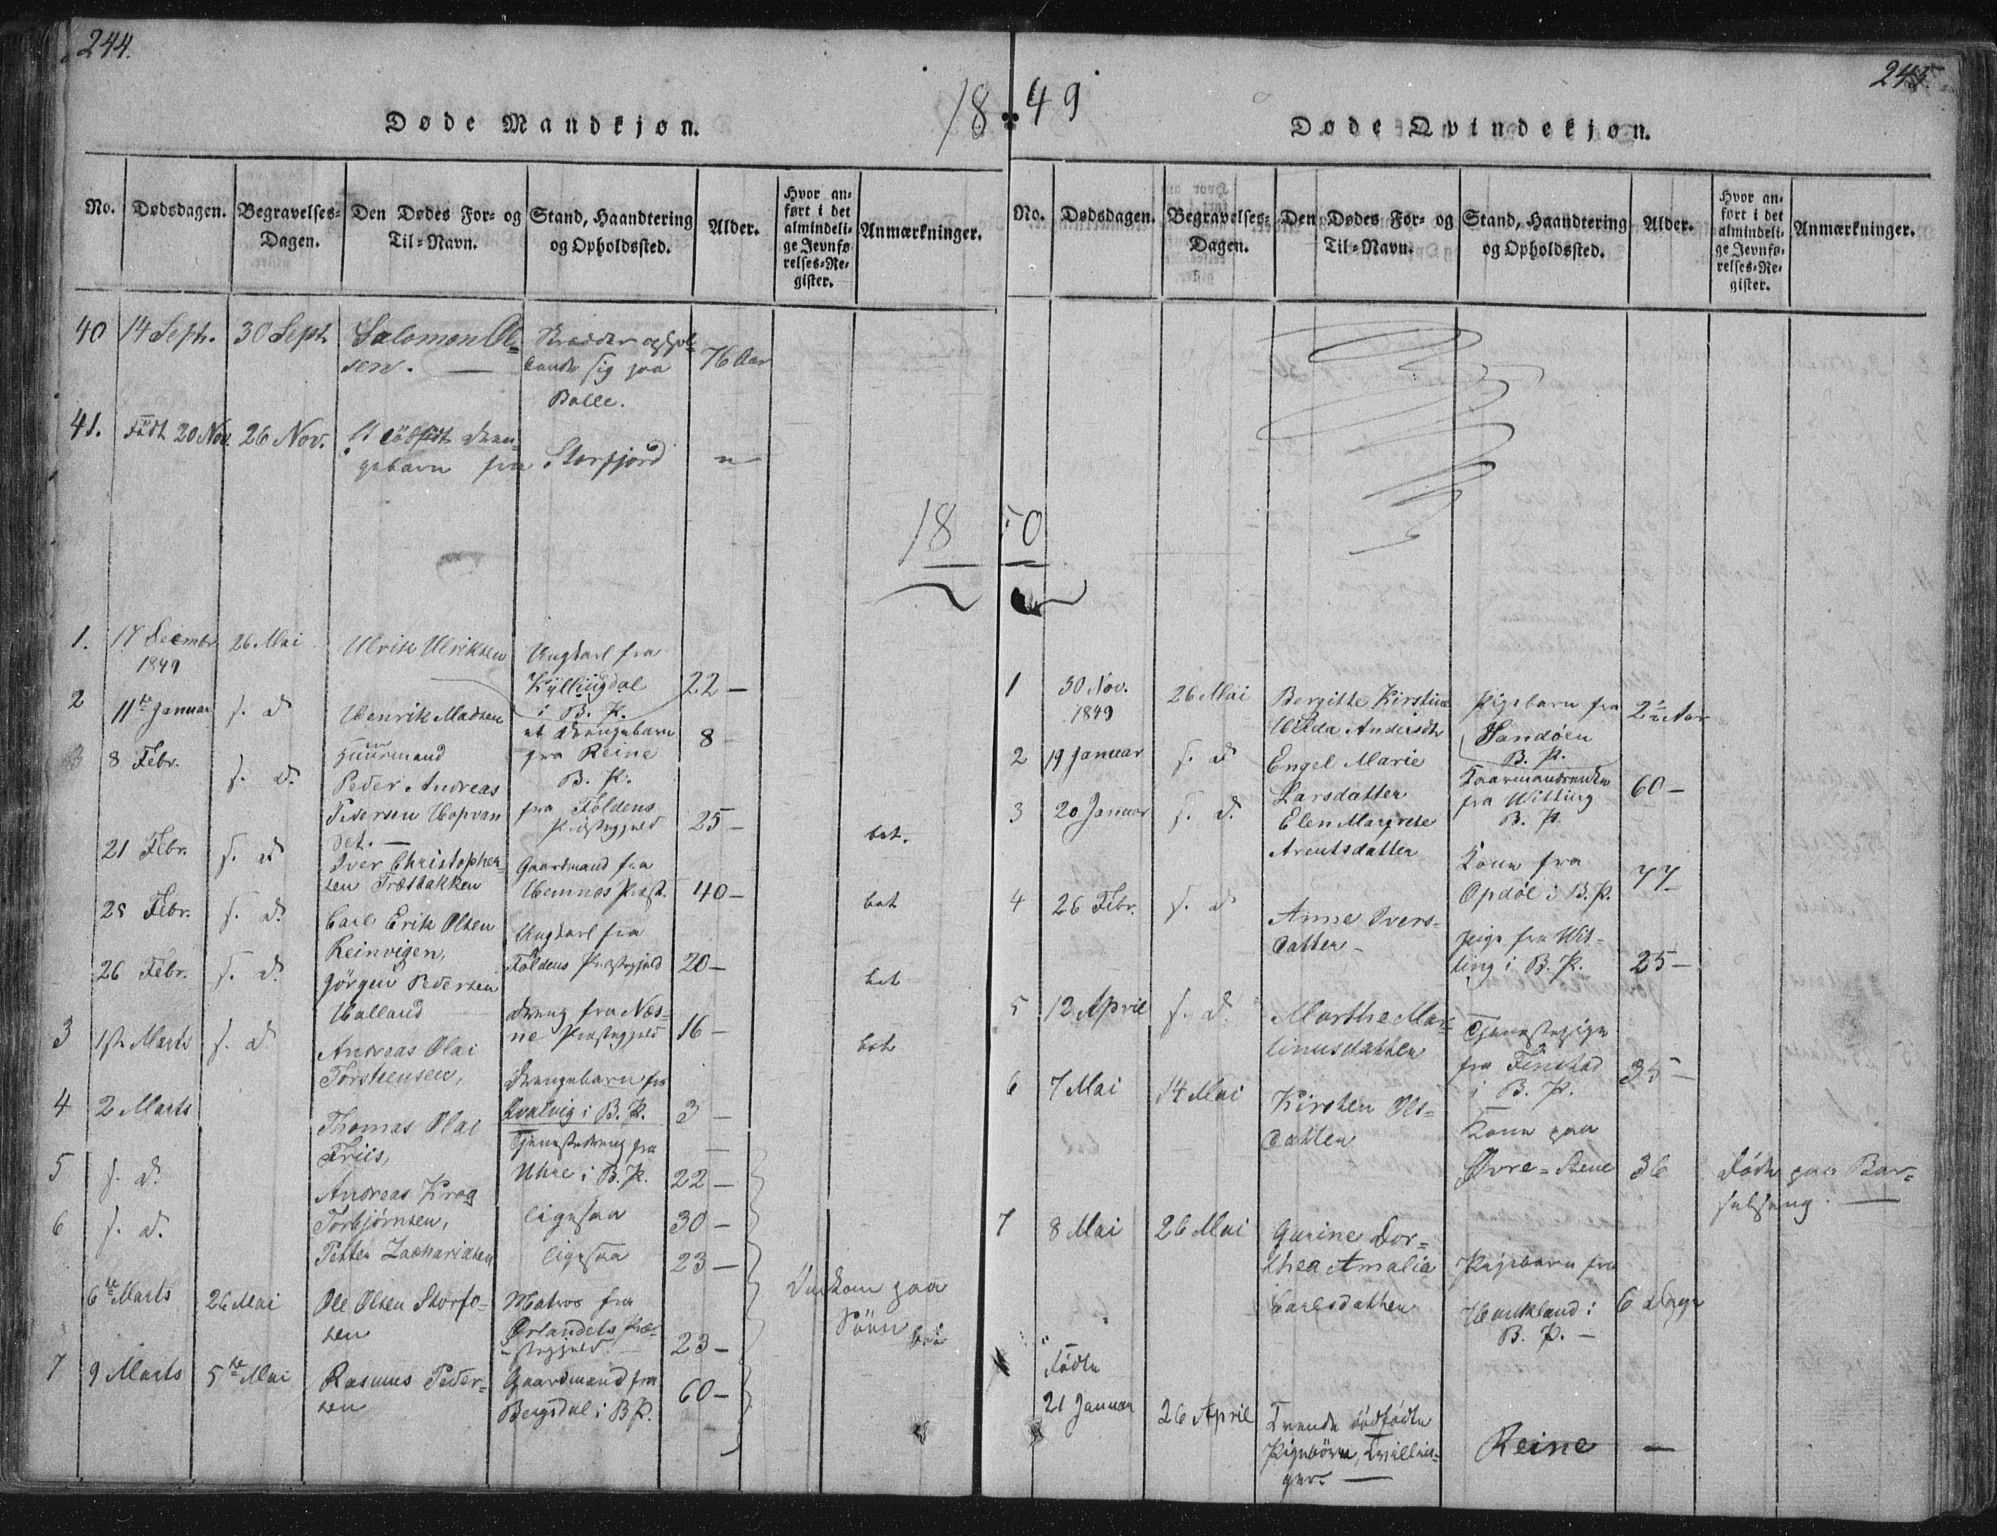 244.
18 49
245.
Døde Mandkjøn.
No. Dødsdagen. Begravelses-Dagen. Den Dødes For- og Til-Navn. Stand, Haandtering og Opholdssted. Alder. Hvor anført i det almindelige Jevnførelses-Register. Anmærkninger.
40 14 Sept. 30 Sept Salomon Ol-
sen. — sig paa 76 Aar
Balle.
41. Födt 20 Nov. 26 Nov. Et dödfödt Dren-
gebarn fra Storfjord "
18 50
1. 17 Decembr 26 Mai Ulrik Ulriksen Ungkarl fra
1849 Kyllingdal 22 —
i B. P.
2 11te Januar s. d. Henrik Madsen et Drengebarn
fra Reine 8 —
B. P.
3 8 Febr. s. d. Peder Andreas
Pedersen Hopvan fra Foldens
det. — Præstegjeld 25 — bet.
21 Febr. s. d. Iver Christopher- Gaardmand fra
sen Træsbakken Hemnæs Præst. 40 — bet
25 Febr. s. d. Carl Erik Olsen Ungkarl fra
Reinvigen, Foldens Præstegjeld 20 — bet
26 Febr. s. d. Jörgen Pedersen
Halland Dreng fra Næs-
ne Præstegjeld 16 — bet
3 1ste Marts s. d. Andreas Olai
Torstensen, Drengebarn fra
Qvalvig i B. P. 3 —
4 2 Marts Thomas Olai
Friis, Tjenestedreng fra
Uhre i B. P. 22 —
5 s. d. Andreas Krog
Torbjørnsen, ligesaa 30 —
6 s. d. Petter Zachariasen ligesaa 23 —
Omkom paa
Söen
6te Marts 26 Mai Ole Olsen Storfo- Matros fra
sen Ørlandets Præ-
stegjeld. 23 —
7 9 Marts 5te Mai Rasmus Peder- Gaardmand fra
sen Bergsdal i B P. 60 —
Døde Qvindekjøn.
No. Dødsdagen. Begravelses-Dagen. Den Dødes For- og Til-Navn. Stand, Haandtering og Opholdssted. Alder. Hvor anført i det almindelige Jevnførelses-Register. Anmærkninger.
1 30 Nov. 26 Mai Bergitte Kirstine Pigebarn fra 2½ Aar
1849 Hilda Andersdtr Sandøen
B. P.
2 19 Januar s. d. Engel Marie
Larsdatter fra Witting 60 —
B. P.
3 20 Januar s. d. Elen Margrete
Arentsdatter Kone fra
Opdøl i B. P. 77
4 26 Febr. s. d. Anne Ivers-
datter — Pige fra Wit-
ting i B. P. 25 —
5 12 April s. d. Marthe Mar-
tinusdatter Tjenestepige
fra Finstad
i B. P. 35 —
6 7 Mai 14 Mai Kirsten Ols-
datter Kone paa
Øvre-Stene 36 Døde paa Bar-
selseng. —
7 8 Mai 26 Mai Gurine Dor-
thea Amalie Pigebarn fra
Carlsdatter Haukland i 6 Dage
B. P. —
Födte
21 Januar 26 April Tvende dödfödte
Pigebörn, Tvillin-
ger. — Reine —